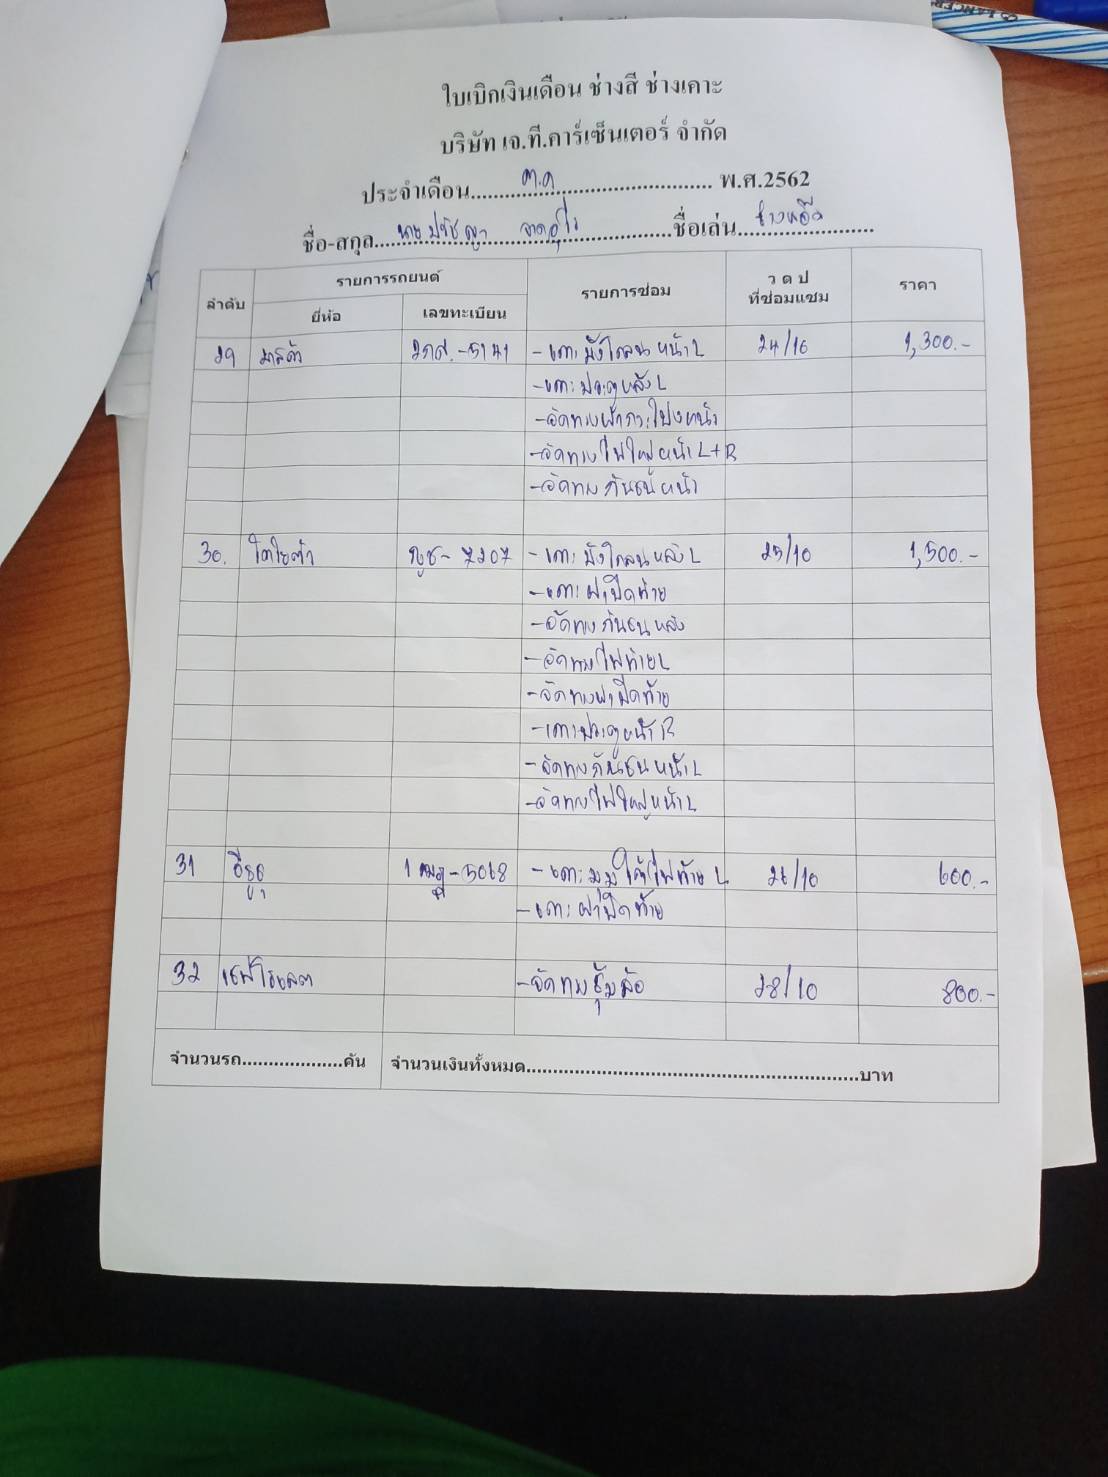 ใบเบิกเงินเดือน ช่างสี ช่างเคาะ
บริษัท เจ.ที.คาร์เซ็นเตอร์ จำกัด
ประจำเดือน ต.ค พ.ศ.2562
ชื่อ-สกุล นาย ชื่อเล่น
ลำดับ รายการรถยนต์ รายการซ่อม ว ด ป ที่ซ่อมแซม ราคา
ยี่ห้อ เลขทะเบียน
29 มาสด้า -5141 -เคาะบังโคลนหน้า L 24/10 1,300.-
-เคาะประตูหลัง L
-จัดทรงฝากระโปงหน้า
-จัดทรงไฟใหญ่หน้า L+R
-จัดทรงกันชนหน้า
30. โตโยต้า -7207 -เคาะบังโคลนหลัง L 25/10 1,500.-
-เคาะฝาปิดท้าย
-จัดทรงกันชนหลัง
-จัดทรงไฟท้าย L
-จัดทรงฝาปิดท้าย
-เคาะประตูหน้า R
-จัดทรงกันชนหน้า L
-จัดทรงไฟใหญ่หน้า L
31 อีซูซุ 1 -5068 -เคาะมุมใต้ไฟท้าย L 26/10 600.-
-เคาะฝาปิดท้าย
32 เชฟโรเลต -จัดทรงซุ้มล้อ 28/10 800.-
จำนวนรถ....................คัน จำนวนเงินทั้งหมด..............................................................บาท